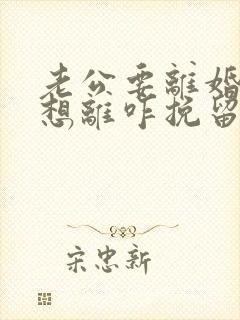 老公要離婚
想離咋挽留
宋忠新